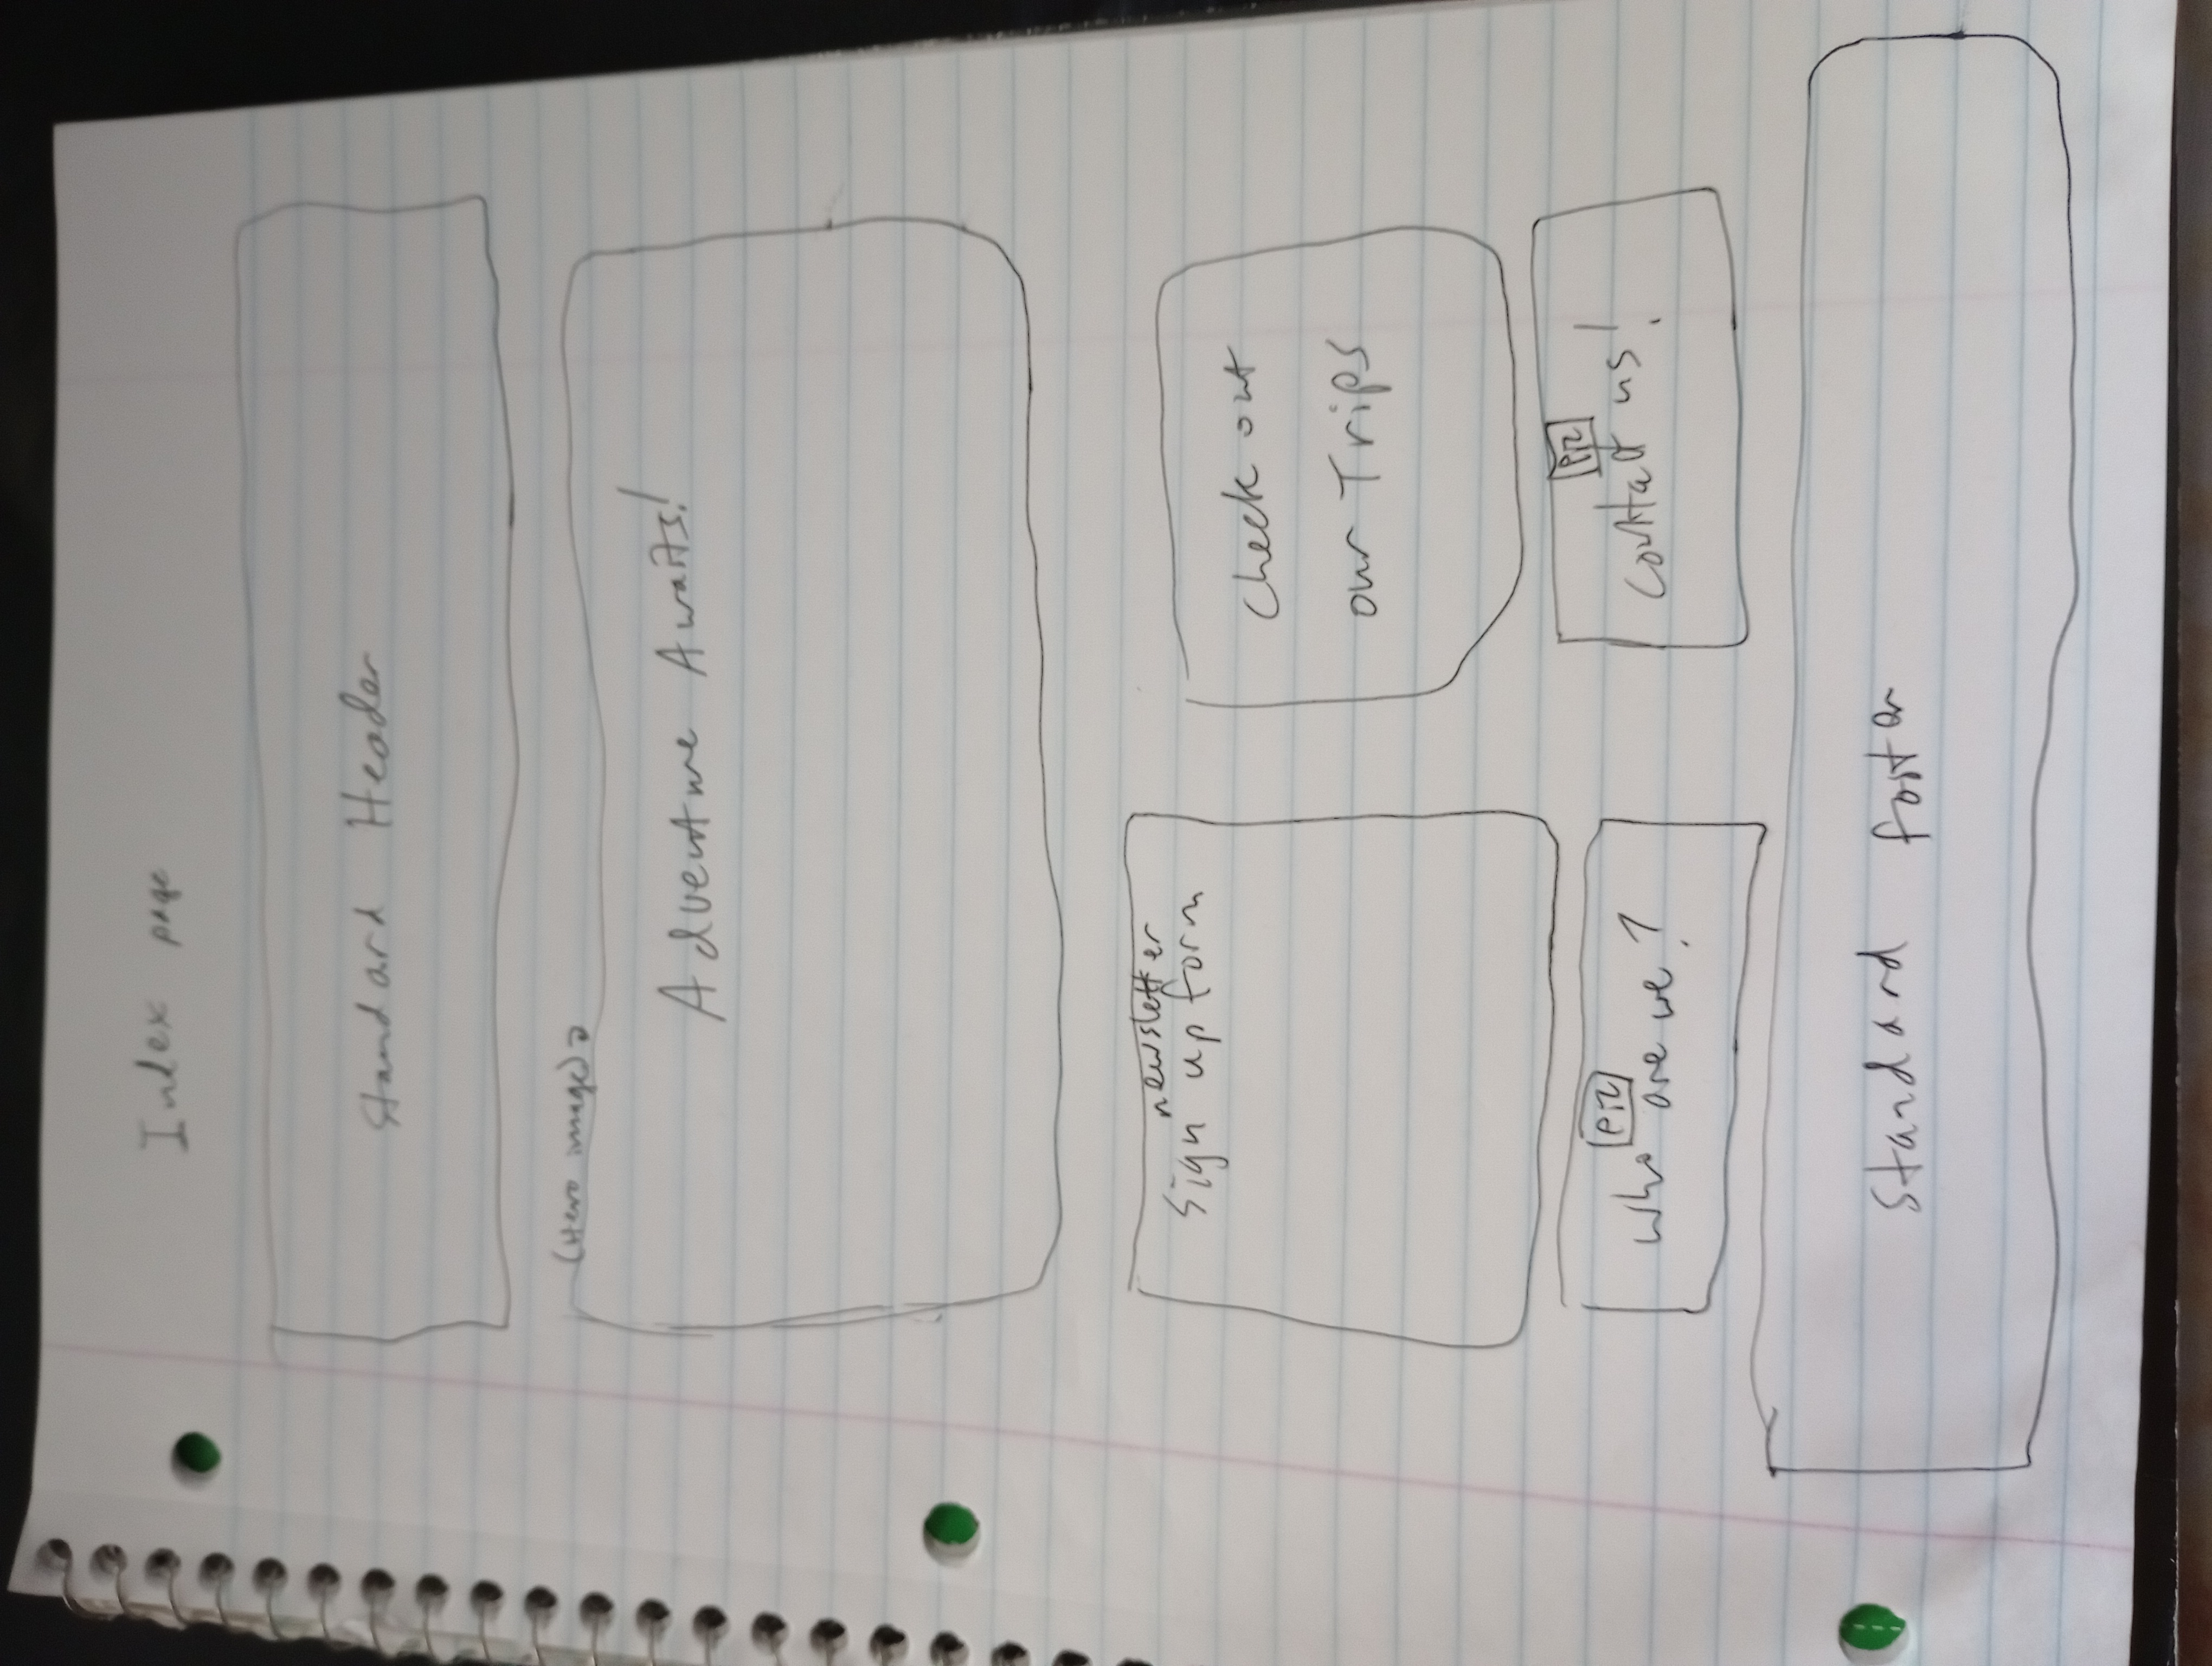 Index page
Standard Header
(Hero image)
Adventure Awaits!
newsletter
Sign up form
Check out
our Trips
Who are we?
Contact us!
Standard footer